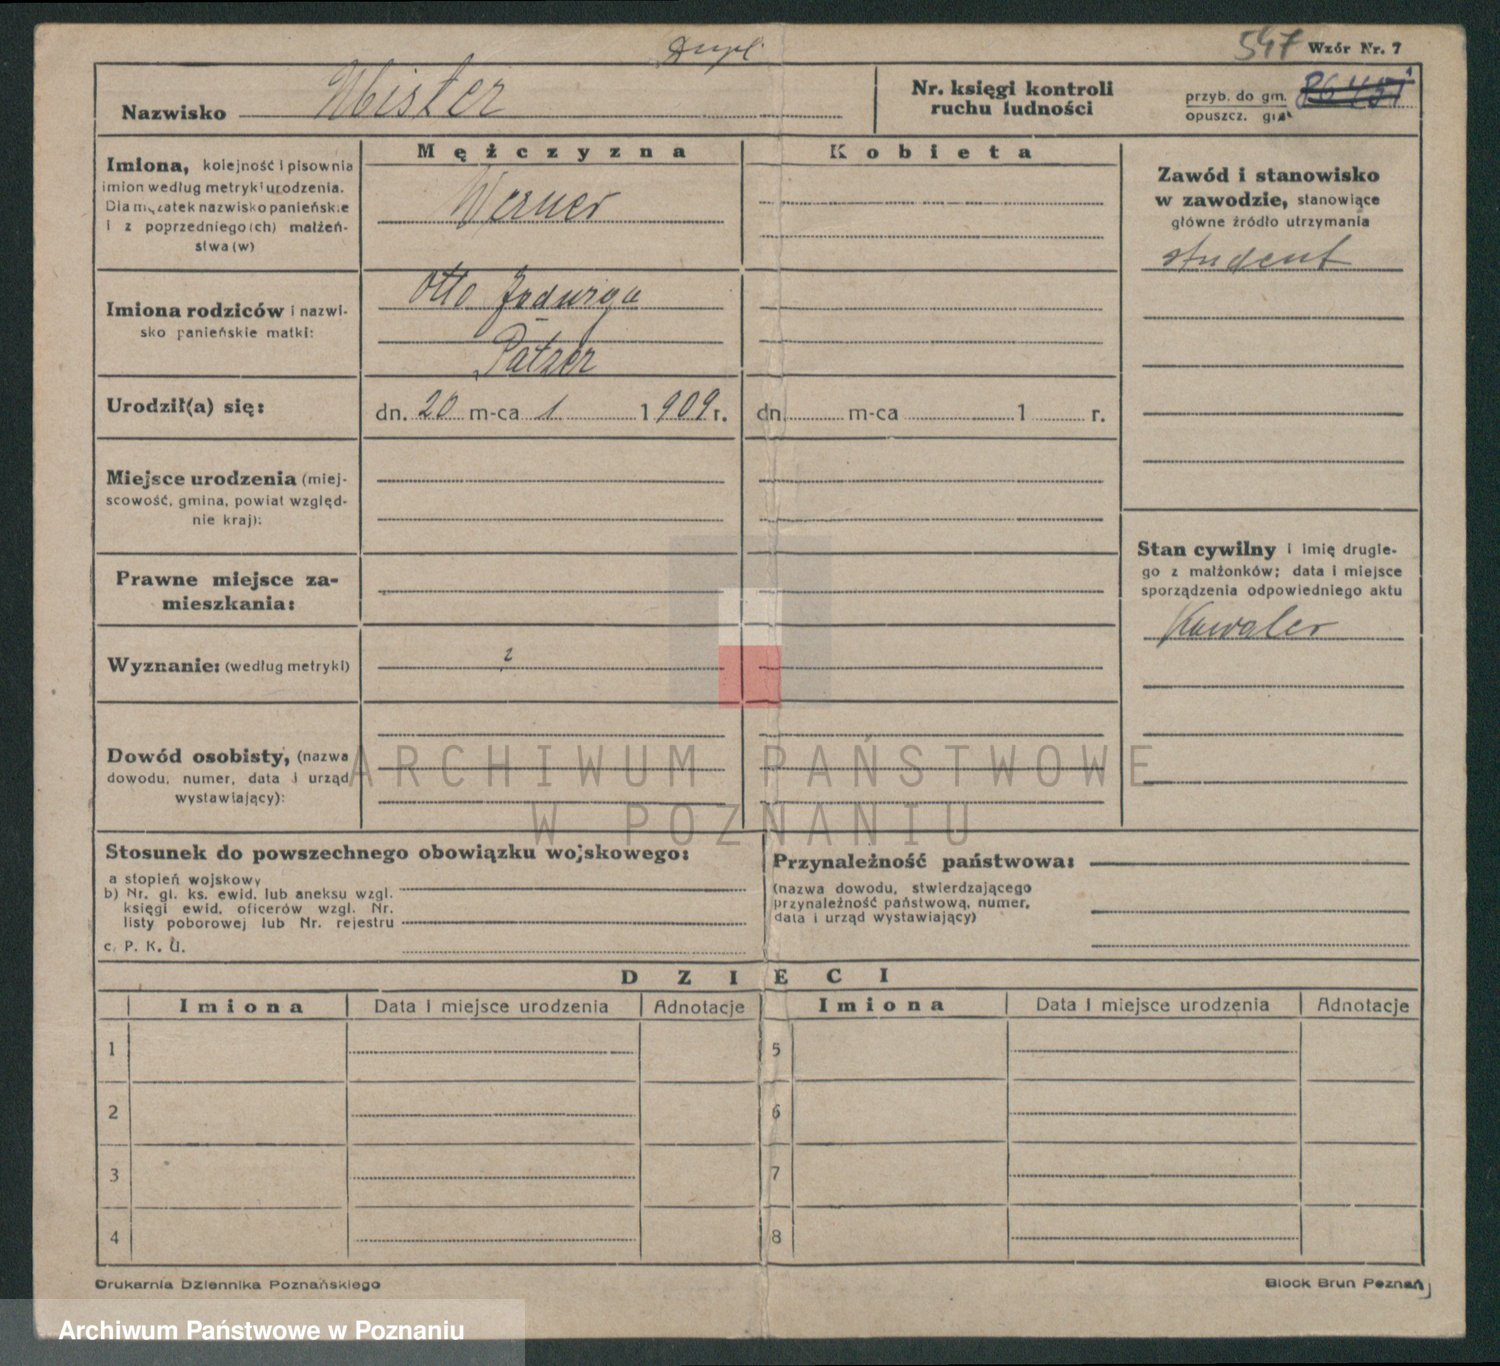 Dupl.
547 Wzór Nr. 7
Nazwisko Mister
Nr. księgi kontroli
ruchu ludności
przyb. do gm.
opuszcz. gm.
Mężczyzna
Kobieta
Imiona, kolejność i pisownia
imion według metryki urodzenia.
Dla mężatek nazwisko panieńskie
i z poprzedniego(ch) małżeń-
stwa(w)
Werner
Zawód i stanowisko
w zawodzie, stanowiące
główne źródło utrzymania
student
Imiona rodziców i nazwi-
sko panieńskie matki:
Otto Jadwiga
Patzer
Urodził(a) się:
dn. 20 m-ca 1 1909 r.
dn. m-ca 1 r.
Miejsce urodzenia (miej-
scowość, gmina, powiat względ-
nie kraj):
Stan cywilny i imię drugie-
go z małżonków; data i miejsce
sporządzenia odpowiedniego aktu
Kawaler
Prawne miejsce za-
mieszkania:
Wyznanie: (według metryki)
Dowód osobisty, (nazwa
dowodu, numer, data i urząd
wystawiający):
ARCHIWUM PAŃSTWOWE
W POZNANIU
Stosunek do powszechnego obowiązku wojskowego:
a stopień wojskowy
b) Nr. gl. ks. ewid. lub aneksu wzgl.
księgi ewid. oficerów wzgl. Nr.
listy poborowej lub Nr. rejestru
c. P. K. U.
Przynależność państwowa:
(nazwa dowodu, stwierdzającego
przynależność państwową, numer,
data i urząd wystawiający)
DZIECI
Imiona Data i miejsce urodzenia Adnotacje Imiona Data i miejsce urodzenia Adnotacje
1 5
2 6
3 7
4 8
Drukarnia Dziennika Poznańskiego
Block Brun Poznań
Archiwum Państwowe w Poznaniu